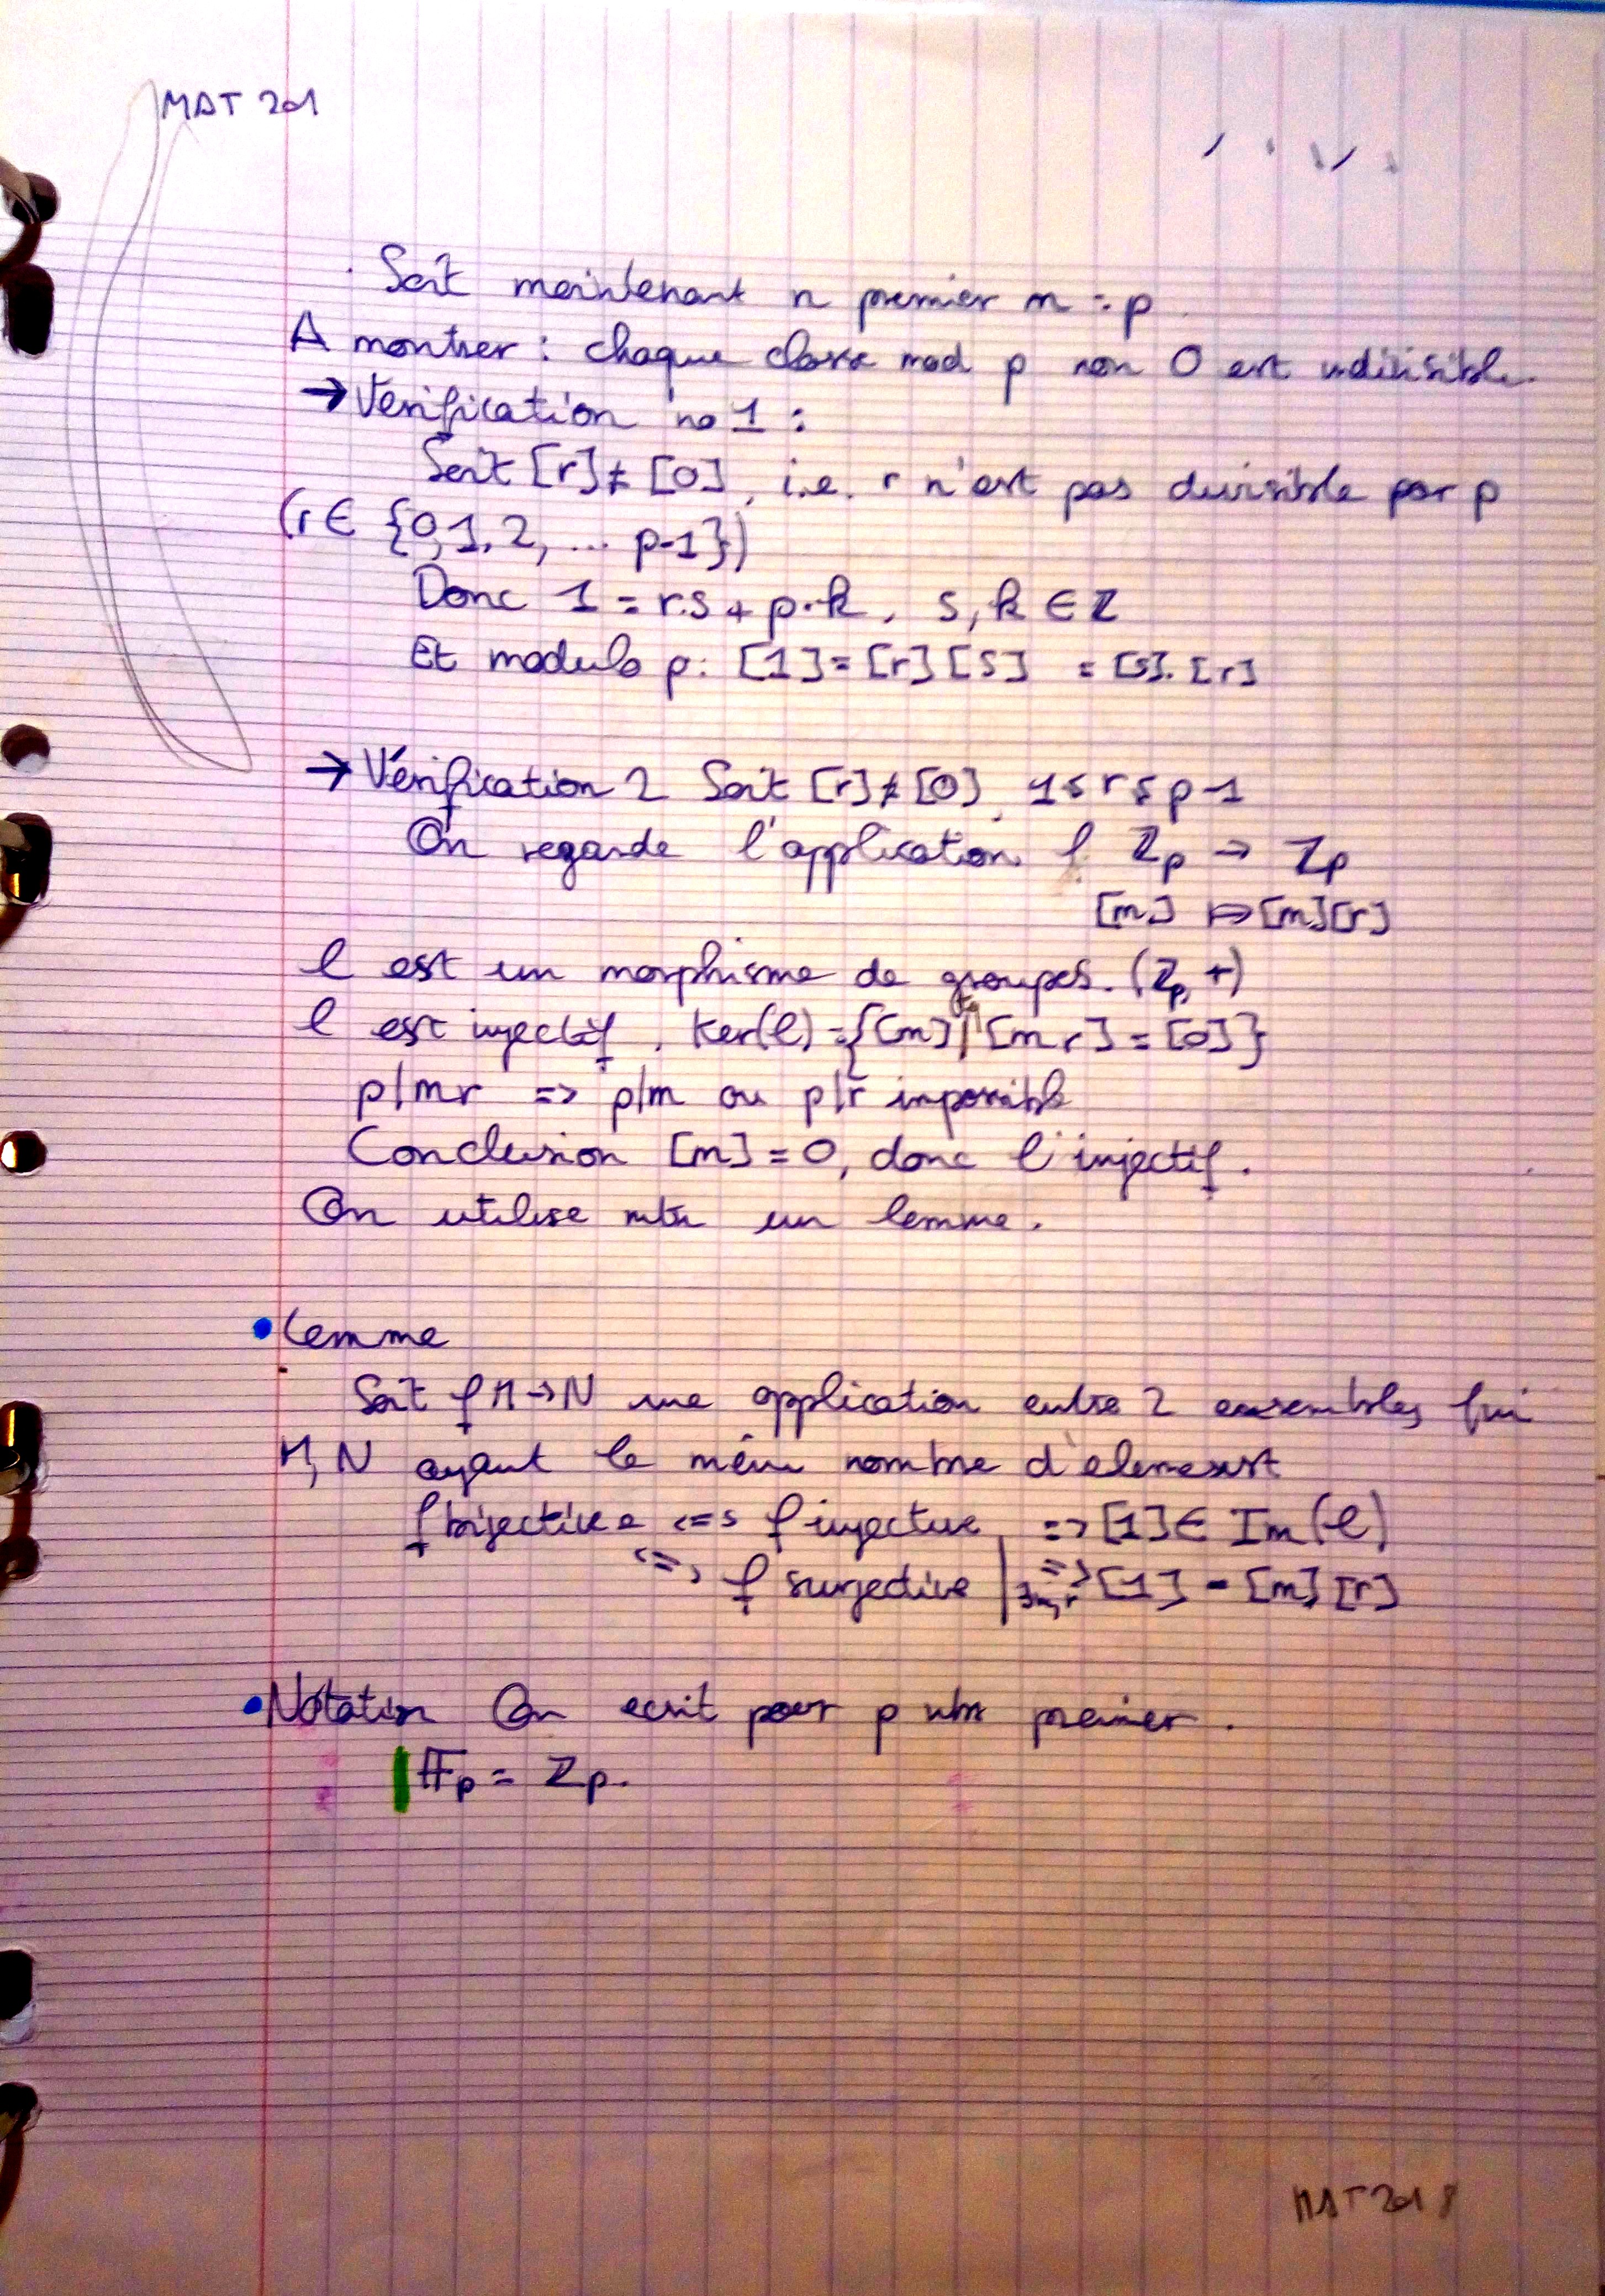 MAT 201
Soit maintenant n premier n = p
A montrer : chaque classe mod p non 0 est indivisible.
→ Vérification no 1 :
Soit [r] ≠ [0], i.e. r n'est pas divisible par p
(r ∈ {0,1,2, ... p-1})
Donc 1 = r.s + p.k, s, k ∈ ℤ
Et modulo p: [1] = [r][s] = [s].[r]
→ Vérification 2 Soit [r] ≠ [0], 1 ≤ r ≤ p-1
On regarde l'application l: ℤp → ℤp
[m] ↦ [m][r]
l est un morphisme de groupes. (ℤp, +)
l est injectif. Ker(l) = {[m] tq [mr] = [0]}
p|mr => p|m ou p|r impossible
Conclusion [m] = 0, donc l injectif.
On utilise mtn un lemme.
• Lemme
Soit f M → N une application entre 2 ensembles fini
M, N ayant le même nombre d'element
f bijective <=> f injective => [1] ∈ Im(l)
<=> f surjective | => [1] = [m][r]
• Notation On ecrit pour p nbr premier.
𝔽p = ℤp.
MAT 201